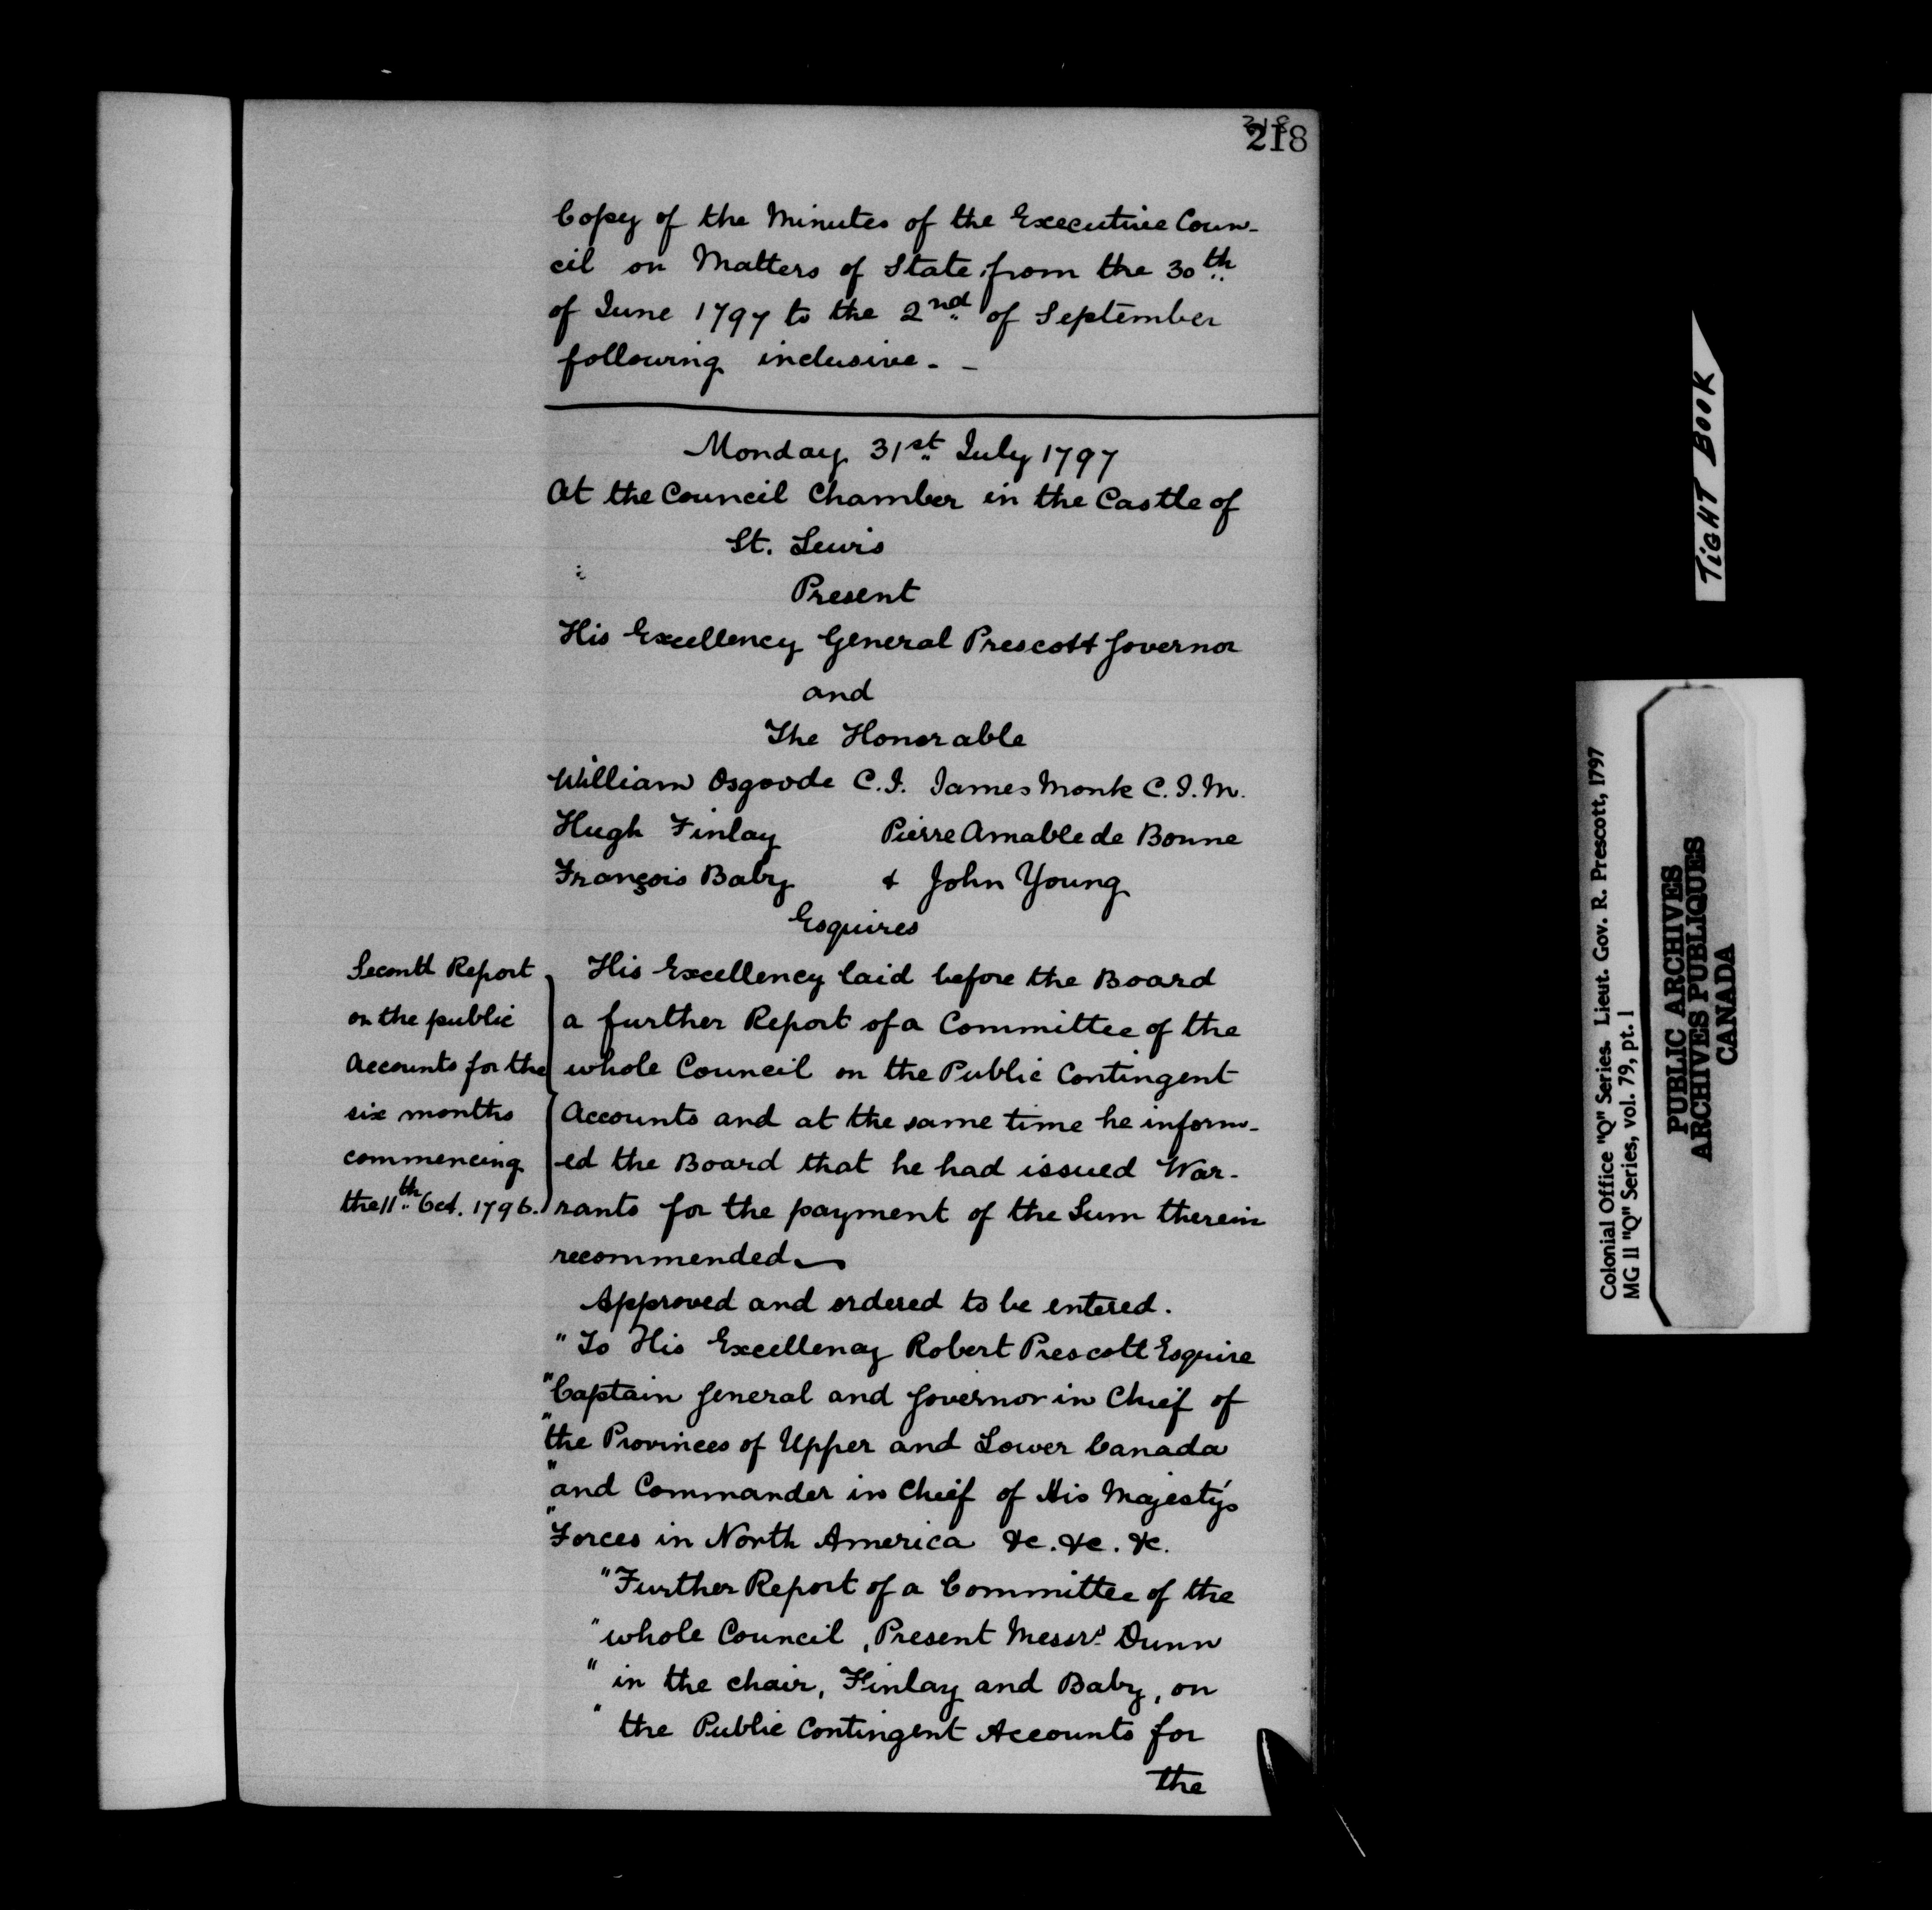 218
218
Copy of the Minutes of the Executive Coun-
cil on Matters of State from the 30th
of June 1797 to the 2nd of September
following inclusive. -
Monday 31st July 1797
At the Council Chamber in the Castle of
St. Lewis
Present
His Excellency General Prescott Governor
and
The Honorable
William Osgoode C.J. James Monk C.J.M.
Hugh Finlay Pierre Amable de Bonne
François Baby & John Young
Esquires
Second Report
on the public
Accounts for the
six months
commencing
the 11th Oct. 1796.
His Excellency laid before the Board
a further Report of a Committee of the
whole Council on the Public Contingent
Accounts and at the same time he inform-
-ed the Board that he had issued War-
rants for the payment of the Sum therein
recommended
Approved and ordered to be entered.
"To His Excellency Robert Prescott Esquire
"Captain General and Governor in Chief of
"the Provinces of Upper and Lower Canada
"and Commander in Chief of His Majesty's
"Forces in North America &c. &c. &c.
"Further Report of a Committee of the
"whole Council, Present Messrs Dunn
"in the chair, Finlay and Baby, on
"the Public Contingent Accounts for
the
TIGHT BOOK
Colonial Office "Q" Series. Lieut. Gov. R. Prescott, 1797
MG 11 "Q" Series, vol. 79, pt. 1
PUBLIC ARCHIVES
ARCHIVES PUBLIQUES
CANADA